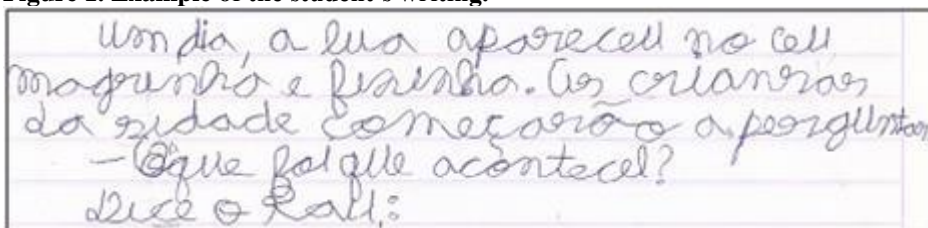 Figure 2. Example of the student's writing.
um dia, a lua apareceu no ceu
magrinha e fininha. As crianças
da sidade começarão a perguntar
- O que foi que aconteceu?
Dice o Raul: